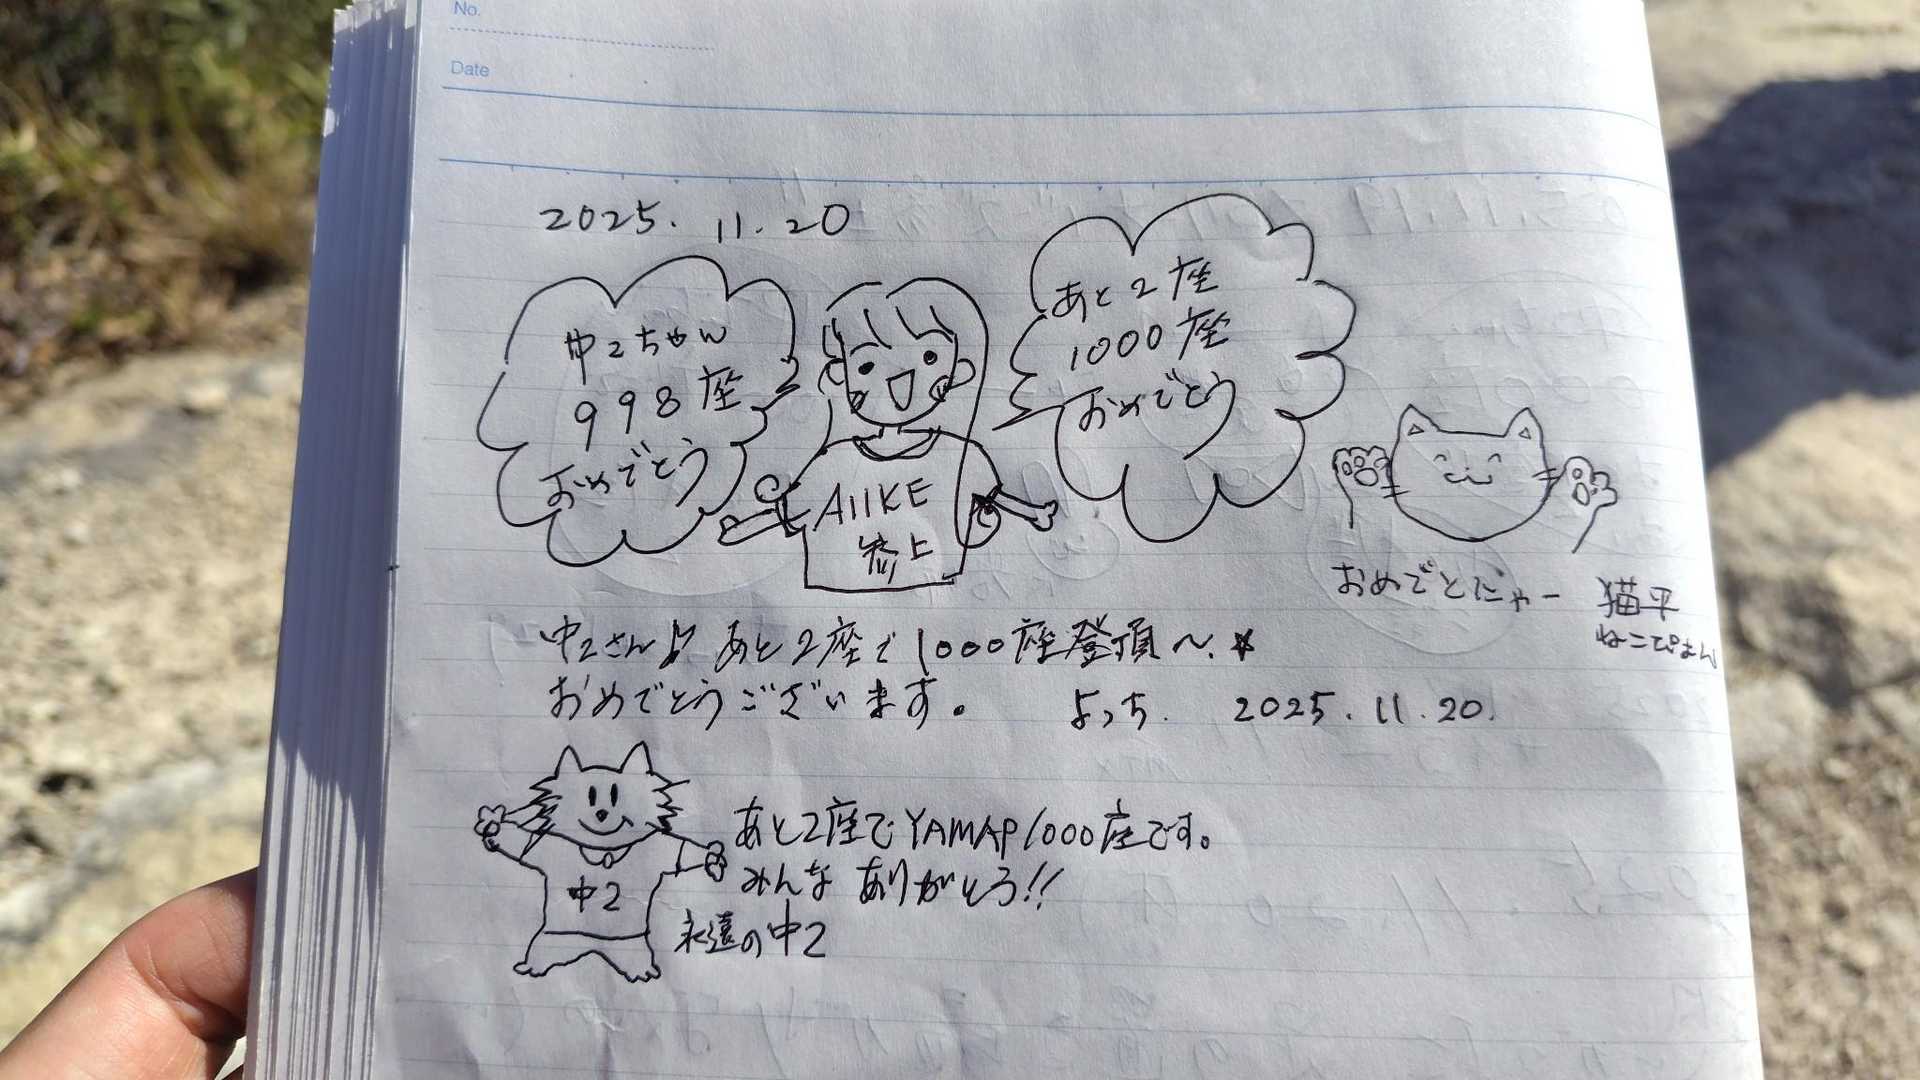 No.
Date
2025. 11. 20
中2ちゃん
998座
おめでとう
あと2座
1000座
おめでとう
AIIKE
参上
おめでとにゃー 猫平
ねこぴょん
中2さん♪ あと2座で1000座登頂〜.★
おめでとうございます。 よっち. 2025. 11. 20.
あと2座でYAMAP1000座です。
みんな ありがとう!!
中2
永遠の中2